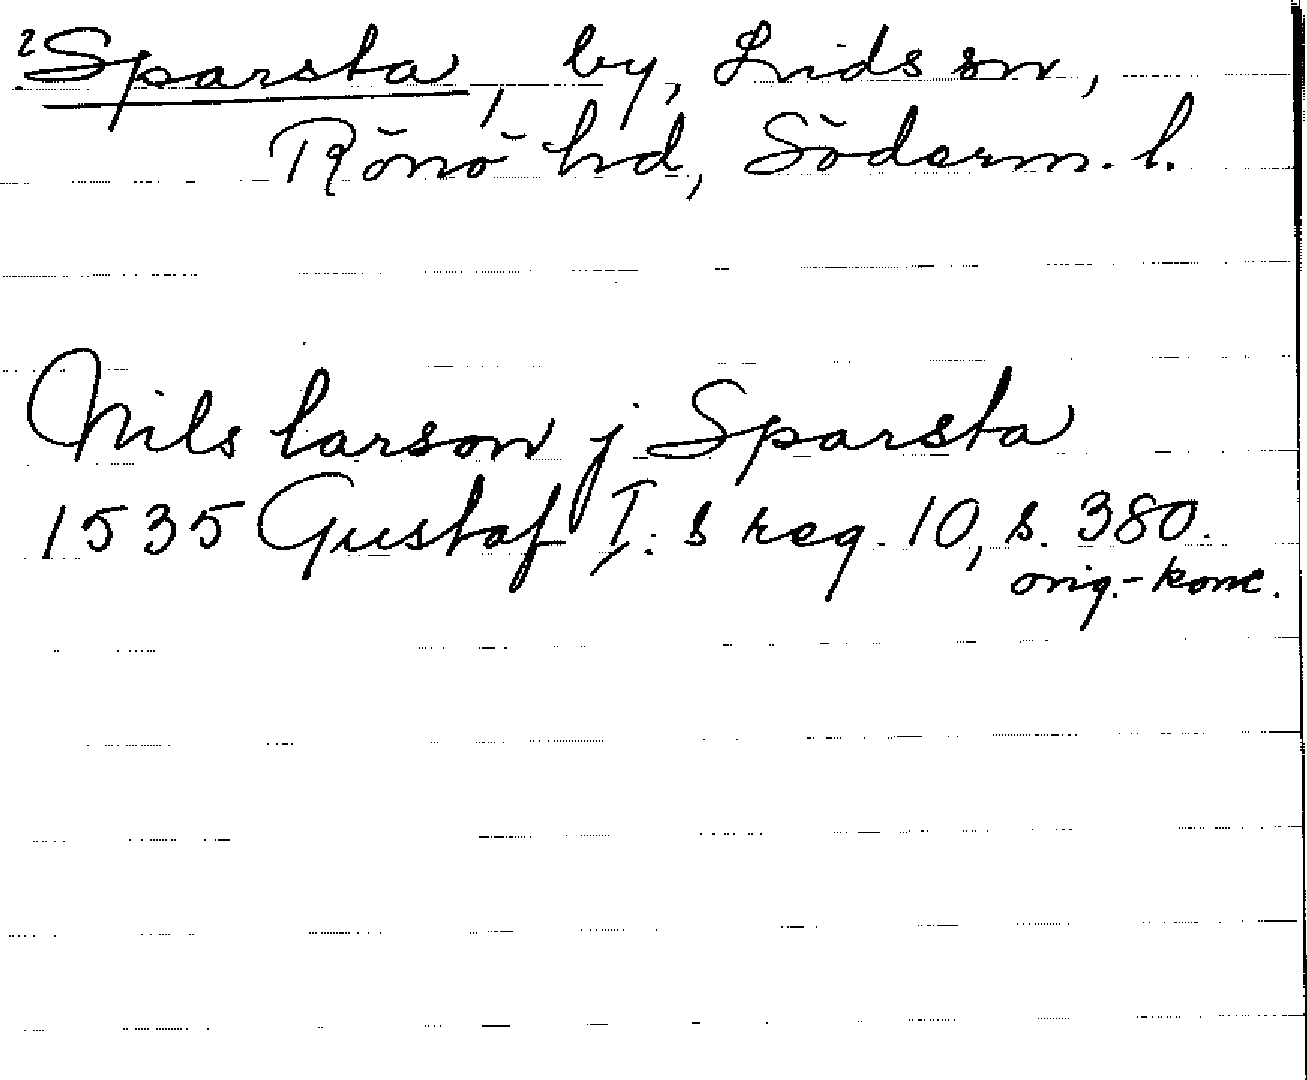 2Sparsta, by, Lids sn,
Rönö hd, Söderm. l.
Nils larson j Sparsta
1535 Gustaf I: s reg. 10, s. 380.
orig.-konc.